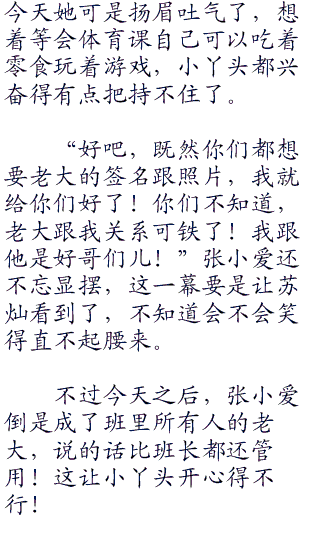 今天她可是扬眉吐气了，想
着等会体育课自己可以吃着
零食玩着游戏，小丫头都兴
奋得有点把持不住了。
“好吧，既然你们都想
要老大的签名跟照片，我就
给你们好了！你们不知道，
老大跟我关系可铁了！我跟
他是好哥们儿！”张小爱还
不忘显摆，这一幕要是让苏
灿看到了，不知道会不会笑
得直不起腰来。
不过今天之后，张小爱
倒是成了班里所有人的老
大，说的话比班长都还管
用！这让小丫头开心得不
行！